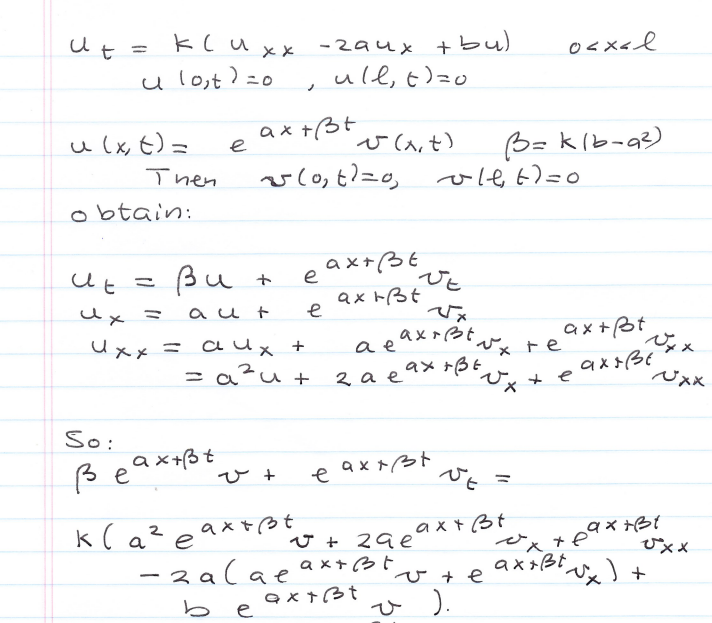 u_t = k(u_xx - 2au_x + bu) 0<x<l
u(0,t)=0, u(l,t)=0
u(x,t)= e^{ax+βt} v(x,t) β= k(b-a²)
Then v(0,t)=0, v(l,t)=0
obtain:
u_t = βu + e^{ax+βt} v_t
u_x = au + e^{ax+βt} v_x
u_xx = au_x + ae^{ax+βt} v_x + e^{ax+βt} v_xx
= a²u + 2ae^{ax+βt} v_x + e^{ax+βt} v_xx
So:
βe^{ax+βt} v + e^{ax+βt} v_t =
k(a²e^{ax+βt} v + 2ae^{ax+βt} v_x + e^{ax+βt} v_xx
-2a(ae^{ax+βt} v + e^{ax+βt} v_x) +
be^{ax+βt} v).